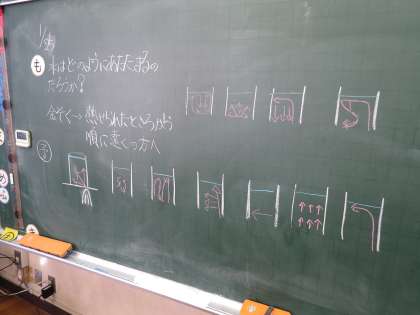 も
水はどのようにあたたまるの
だろうか?
金ぞく→熱せられたところから
順に遠くの方へ
予